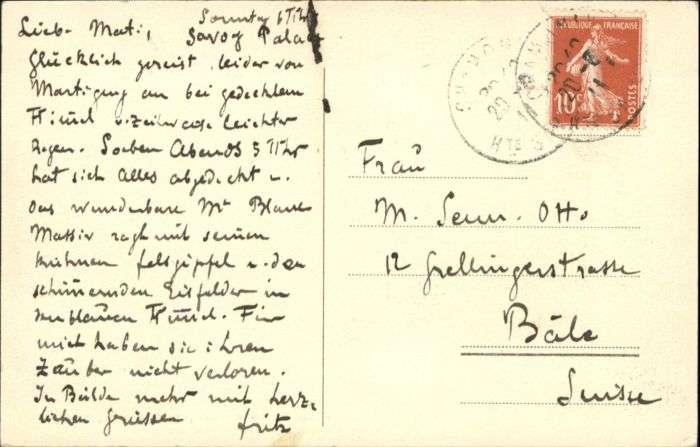 Sonntag 6 Uhr
Lieb. Mati, Savoy Palace
Glücklich gereist leider von
Martigny an bei gedecktem
Himel u. zeilweise leichter
Regen. Soeben Abends 5 Uhr
hat sich Alles abgedeckt u.
das wunderbare Mt Blanc
Massiv ragt mit seinen
kühnen felsgipfel u. den
schimernden Eisfelder in
den blauen Himel. Für
mich haben sie ihren
Zauber nicht verloren.
In Bälde mehr mit herz-
lichen grüssen fritz
REPUBLIQUE FRANÇAISE
10c
POSTES
CHAMONIX
20
Hte S
Frau
M. Senn-Otto
12 Grellingerstrasse
Bâle
Suisse